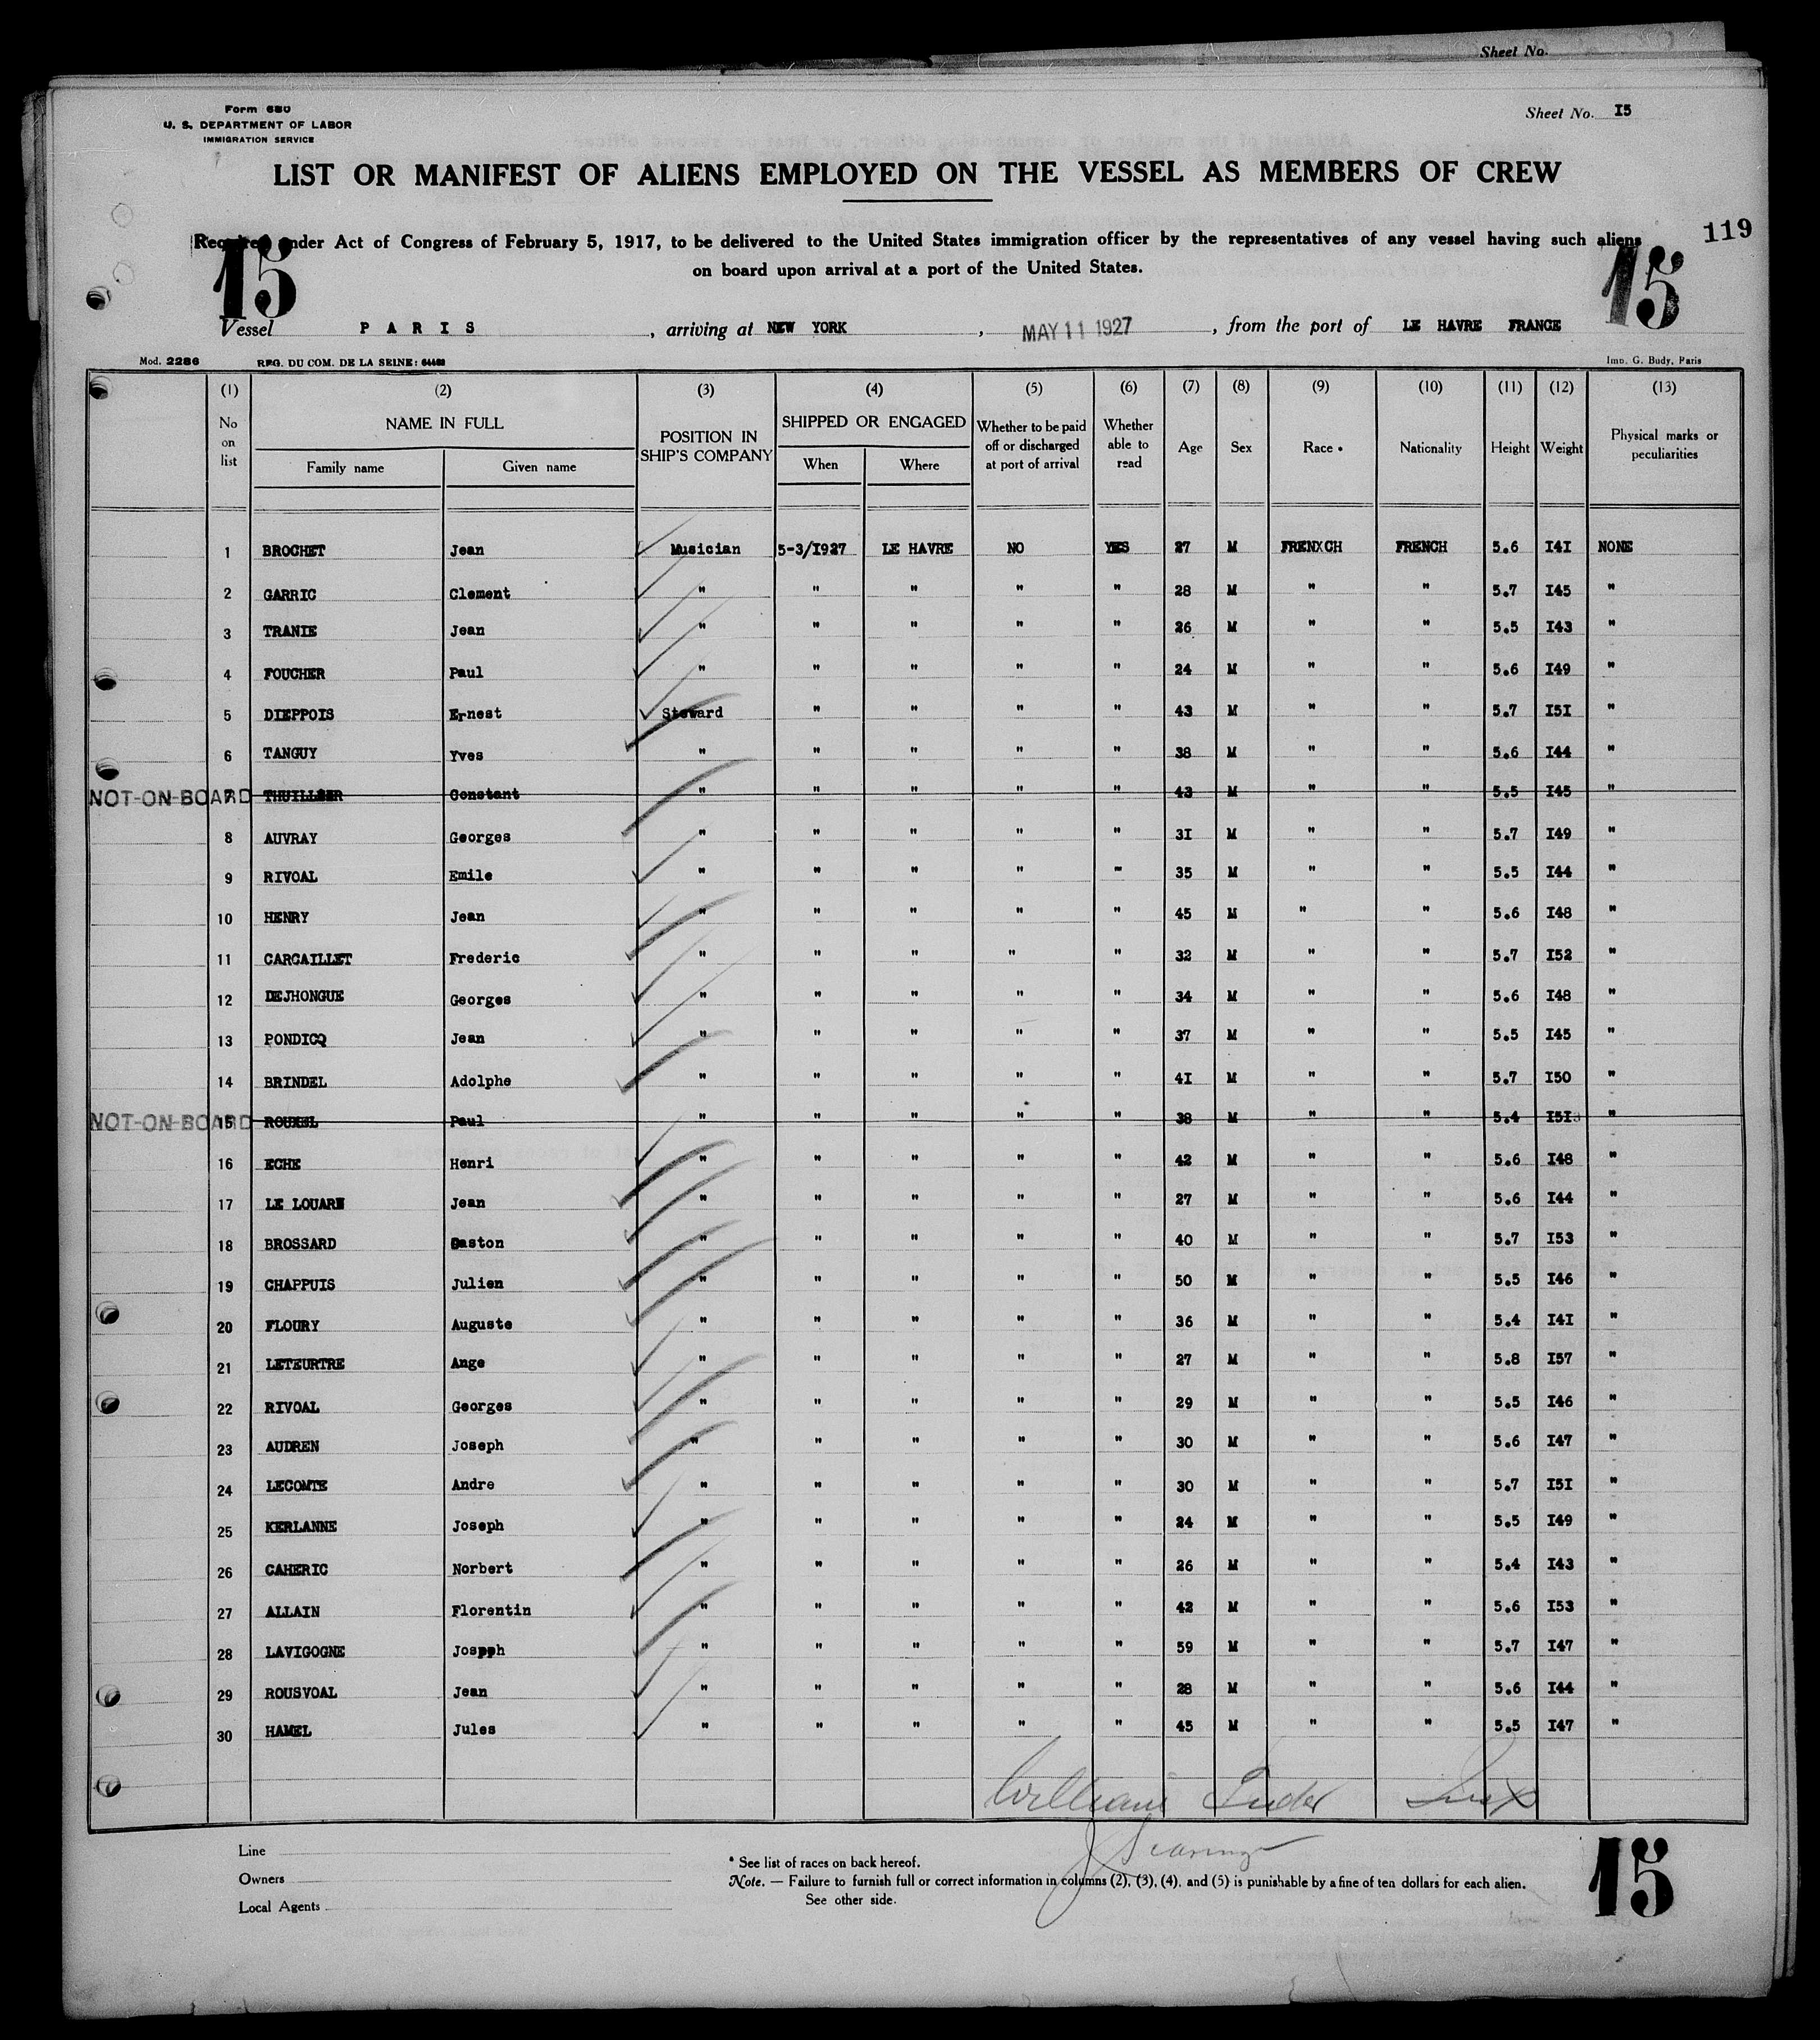 Sheet No.
Form 680
U. S. DEPARTMENT OF LABOR
IMMIGRATION SERVICE
Sheet No. I5
LIST OR MANIFEST OF ALIENS EMPLOYED ON THE VESSEL AS MEMBERS OF CREW
119
Required under Act of Congress of February 5, 1917, to be delivered to the United States immigration officer by the representatives of any vessel having such aliens
on board upon arrival at a port of the United States.
15 15
Vessel PARIS , arriving at NEW YORK , MAY 11 1927 , from the port of LE HAVRE FRANCE
Mod. 2286 REG. DU COM. DE LA SEINE: Imp. G. Budy, Paris
(1) (2) (3) (4) (5) (6) (7) (8) (9) (10) (11) (12) (13)
No on list NAME IN FULL POSITION IN SHIP'S COMPANY SHIPPED OR ENGAGED Whether to be paid off or discharged at port of arrival Whether able to read Age Sex Race * Nationality Height Weight Physical marks or peculiarities
Family name Given name When Where
1 BROCHET Jean Musician 5-3/I927 LE HAVRE NO YES 27 M FRENXCH FRENCH 5.6 I4I NONE
2 GARRIC Clement " " " " " 28 M " " 5.7 I45 "
3 TRANIE Jean " " " " " 26 M " " 5.5 I43 "
4 FOUCHER Paul " " " " " 24 M " " 5.6 I49 "
5 DIEPPOIS Ernest Steward " " " " 43 M " " 5.7 I5I "
6 TANGUY Yves " " " " " 38 M " " 5.6 I44 "
NOT-ON-BOARD 7 THUILLIER Constant " " " " " 43 M " " 5.5 I45 "
8 AUVRAY Georges " " " " " 3I M " " 5.7 I49 "
9 RIVOAL Emile " " " " " 35 M " " 5.5 I44 "
10 HENRY Jean " " " " " 45 M " " 5.6 I48 "
11 CARCAILLET Frederic " " " " " 32 M " " 5.7 I52 "
12 DEJHONGUE Georges " " " " " 34 M " " 5.6 I48 "
13 PONDICQ Jean " " " " " 37 M " " 5.5 I45 "
14 BRINDEL Adolphe " " " " " 4I M " " 5.7 I50 "
NOT-ON-BOARD 15 ROUXEL Paul " " " " " 38 M " " 5.4 I5I "
16 ECHE Henri " " " " " 42 M " " 5.6 I48 "
17 LE LOUARN Jean " " " " " 27 M " " 5.6 I44 "
18 BROSSARD Gaston " " " " " 40 M " " 5.7 I53 "
19 CHAPPUIS Julien " " " " " 50 M " " 5.5 I46 "
20 FLOURY Auguste " " " " " 36 M " " 5.4 I4I "
21 LETEURTRE Ange " " " " " 27 M " " 5.8 I57 "
22 RIVOAL Georges " " " " " 29 M " " 5.5 I46 "
23 AUDREN Joseph " " " " " 30 M " " 5.6 I47 "
24 LECOMTE Andre " " " " " 30 M " " 5.7 I5I "
25 KERLANNE Joseph " " " " " 24 M " " 5.5 I49 "
26 CAHERIC Norbert " " " " " 26 M " " 5.4 I43 "
27 ALLAIN Florentin " " " " " 42 M " " 5.6 I53 "
28 LAVIGOGNE Jospph " " " " " 59 M " " 5.7 I47 "
29 ROUSVOAL Jean " " " " " 28 M " " 5.6 I44 "
30 HAMEL Jules " " " " " 45 M " " 5.5 I47 "
William
Line
Owners
Local Agents
* See list of races on back hereof.
Note. — Failure to furnish full or correct information in columns (2), (3), (4), and (5) is punishable by a fine of ten dollars for each alien.
See other side.
15